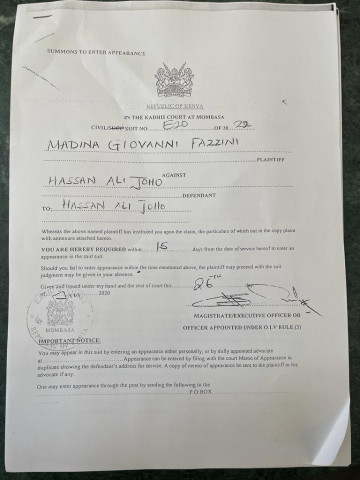 SUMMONS TO ENTER APPEARANCE
REPUBLIC OF KENYA
IN THE KADHIS COURT AT MOMBASA
CIVIL/SUIT NO E20 OF 20 22
MADINA GIOVANNI FAZZINI
PLAINTIFF
AGAINST
HASSAN ALI JOHO
DEFENDANT
TO: HASSAN ALI JOHO
Whereas the above named plaintiff has instituted you upon the claim, the particulars of which out in the copy plaint
with annex are attached hereto.
YOU ARE HEREBY REQUIRED within 15 days from the date of service hereof to enter an
appearance in the said suit.
Should you fail to enter appearance within the time mentioned above, the plaintiff may proceed with the suit
judgment may be given in your absence.
Given and issued under my hand and the seal of this court this 26th
2020
MOMBASA
MAGISTRATE/EXECUTIVE OFFICER OR
OFFICER APPOINTED UNDER O.I.V RULE (3)
IMPORTANT NOTICE:
You may appear in this suit by entering an appearance either personally, or by dully appointed advocate
at Appearance can be entered by filing with the court Memo of Appearance in
duplicate showing the defendant's address for service. A copy of memo of appearance be sent to the plaintiff or his
advocate if any.
One may enter appearance through the post by sending the following to the
P.O BOX